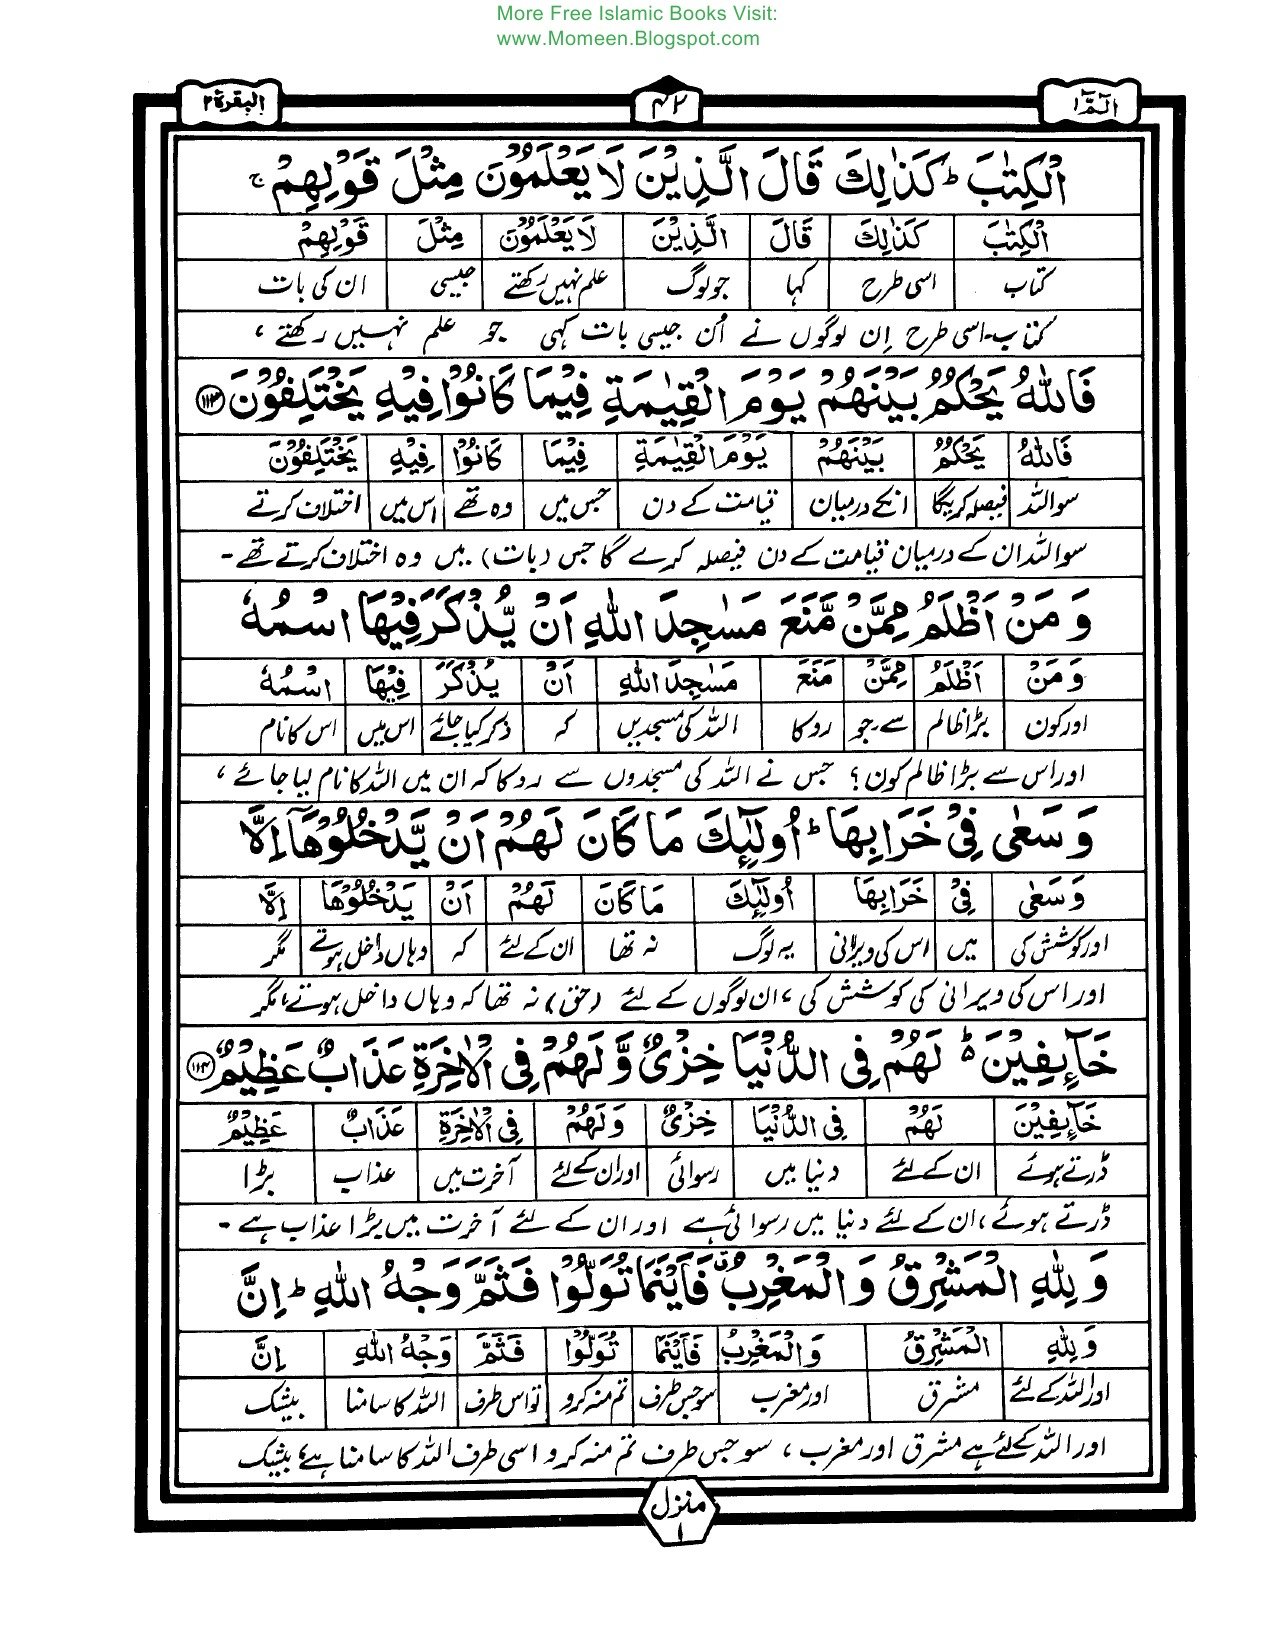 More Free Islamic Books Visit:
www.Momeen.Blogspot.com
الٓمّٓ ۱ ۴۲ البقرة ۲
الْكِتٰبَ ؕ كَذٰلِكَ قَالَ الَّذِيْنَ لَا يَعْلَمُوْنَ مِثْلَ قَوْلِهِمْ ۚ
الْكِتٰبَ كَذٰلِكَ قَالَ الَّذِيْنَ لَا يَعْلَمُوْنَ مِثْلَ قَوْلِهِمْ
کتاب اسی طرح کہا جو لوگ علم نہیں رکھتے جیسی ان کی بات
کتاب۔ اسی طرح اِن لوگوں نے اُن جیسی بات کہی جو علم نہیں رکھتے ،
فَاللّٰهُ يَحْكُمُ بَيْنَهُمْ يَوْمَ الْقِيٰمَةِ فِيْمَا كَانُوْا فِيْهِ يَخْتَلِفُوْنَ ۱۱۳
فَاللّٰهُ يَحْكُمُ بَيْنَهُمْ يَوْمَ الْقِيٰمَةِ فِيْمَا كَانُوْا فِيْهِ يَخْتَلِفُوْنَ
سو اللہ فیصلہ کریگا انکے درمیان قیامت کے دن جس میں وہ تھے اس میں اختلاف کرتے
سو اللہ ان کے درمیان قیامت کے دن فیصلہ کرے گا جس (بات) میں وہ اختلاف کرتے تھے۔
وَ مَنْ اَظْلَمُ مِمَّنْ مَّنَعَ مَسٰجِدَ اللّٰهِ اَنْ يُّذْكَرَ فِيْهَا اسْمُهٗ
وَ مَنْ اَظْلَمُ مِمَّنْ مَنَعَ مَسٰجِدَ اللّٰهِ اَنْ يُذْكَرَ فِيْهَا اسْمُهٗ
اور کون بڑا ظالم سے۔جو روکا اللہ کی مسجدیں کہ ذکر کیا جائے اس میں اس کا نام
اور اس سے بڑا ظالم کون؟ جس نے اللہ کی مسجدوں سے روکا کہ ان میں اللہ کا نام لیا جائے ،
وَ سَعٰى فِيْ خَرَابِهَا ؕ اُولٰٓئِكَ مَا كَانَ لَهُمْ اَنْ يَّدْخُلُوْهَآ اِلَّا
وَ سَعٰى فِيْ خَرَابِهَا اُولٰٓئِكَ مَا كَانَ لَهُمْ اَنْ يَدْخُلُوْهَا اِلَّا
اور کوشش کی میں اس کی ویرانی یہ لوگ نہ تھا ان کے لئے کہ وہاں داخل ہوتے مگر
اور اس کی ویرانی کی کوشش کی ، ان لوگوں کے لئے (حق) نہ تھا کہ وہاں داخل ہوتے، مگر
خَآئِفِيْنَ ؕ لَهُمْ فِى الدُّنْيَا خِزْىٌ وَّ لَهُمْ فِى الْاٰخِرَةِ عَذَابٌ عَظِيْمٌ ۱۱۴
خَآئِفِيْنَ لَهُمْ فِى الدُّنْيَا خِزْىٌ وَ لَهُمْ فِى الْاٰخِرَةِ عَذَابٌ عَظِيْمٌ
ڈرتے ہوئے ان کے لئے دنیا میں رسوائی اور ان کے لئے آخرت میں عذاب بڑا
ڈرتے ہوئے ، ان کے لئے دنیا میں رسوائی ہے اور ان کے لئے آخرت میں بڑا عذاب ہے۔
وَ لِلّٰهِ الْمَشْرِقُ وَ الْمَغْرِبُ فَاَيْنَمَا تُوَلُّوْا فَثَمَّ وَجْهُ اللّٰهِ ؕ اِنَّ
وَ لِلّٰهِ الْمَشْرِقُ وَ الْمَغْرِبُ فَاَيْنَمَا تُوَلُّوْا فَثَمَّ وَجْهُ اللّٰهِ اِنَّ
اور اللہ کے لئے مشرق اور مغرب سو جس طرف تم منہ کرو تو اس طرف اللہ کا سامنا بیشک
اور اللہ کے لئے ہے مشرق اور مغرب ، سو جس طرف تم منہ کرو اسی طرف اللہ کا سامنا ہے، بیشک
منزل
۱